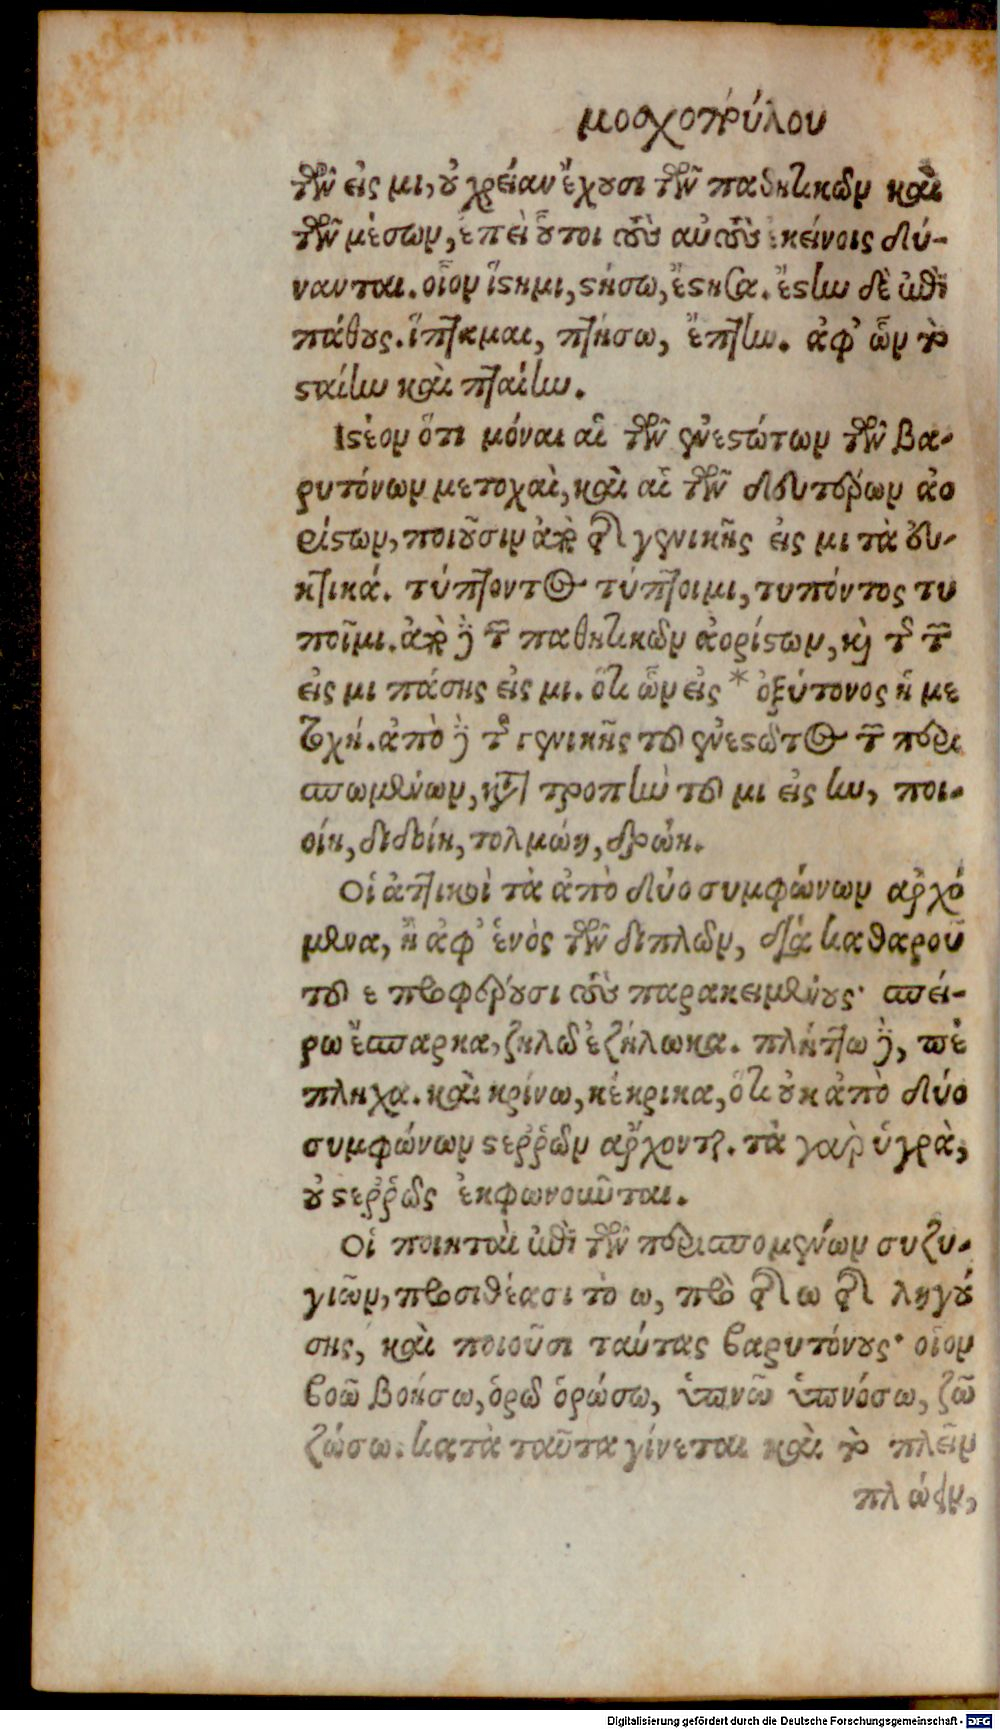 μοσχοπούλου
τῶν εἰς μι, οὐ χρείαν ἔχουσι τῶν παθητικῶν καὶ
τῶν μέσων, ἐπεὶ οὗτοι τοὺς αὐτοὺς ἐκείνοις δύ-
νανται. οἷον ἵστημι, στήσω, ἔστησα. ἔστην δὲ ἐπὶ
πάθους. ἵπταμαι, πτήσω, ἔπτην. ἀφ' ὧν τὸ
σταίην καὶ πταίην.
Ιστέον ὅτι μόναι αἱ τῶν ἐνεστώτων τῶν βα-
ρυτόνων μετοχαὶ, καὶ αἱ τῶν δευτέρων ἀο
ρίστων, ποιοῦσιν ἀπὸ τῆς γενικῆς εἰς μι τὰ εὐ-
κτικά. τύπτοντος τύπτοιμι, τυπόντος τυ
ποῖμι. ἀπὸ δὲ τῶν παθητικῶν ἀορίστων, καὶ τῆς τῶν
εἰς μι πάσης εἰς μι. ὅτι ὧν εἰς * ὀξύτονος ἡ με
τοχή. ἀπὸ δὲ τῆς γενικῆς τοῦ ἐνεστῶτος τῶν περι
σπωμένων, κατὰ τροπὴν τοῦ μι εἰς ην, ποι-
οίη, διδοίη, τολμώη, δρῴη.
Οἱ ἀττικοὶ τὰ ἀπὸ δύο συμφώνων ἀρχό
μενα, ἢ ἀφ' ἑνὸς τῶν διπλῶν, διὰ καθαροῦ
τοῦ ε προφέρουσι τοὺς παρακειμένους· σπεί-
ρω ἔσπαρκα, ζηλῶ ἐζήλωκα. πλήττω δὲ, πέ
πληχα. καὶ κρίνω, κέκρικα, ὅτι οὐκ ἀπὸ δύο
συμφώνων στερρῶν ἄρχονται. τὰ γὰρ ὑγρὰ,
οὐ στερρῶς ἐκφωνοῦνται.
Οἱ ποιηταὶ ἐπὶ τῶν περισπομένων συζυ-
γιῶν, προσιθέασι τὸ ω, πρὸ τῆς ω τῆς ληγού
σης, καὶ ποιοῦσι ταύτας βαρυτόνους· οἷον
βοῶ βοήσω, ὁρῶ ὁρώσω, ὑπνῶ ὑπνόσω, ζῶ
ζώσω. κατὰ ταῦτα γίνεται καὶ τὸ πλεῖν
πλώειν,
Digitalisierung gefördert durch die Deutsche Forschungsgemeinschaft - DFG